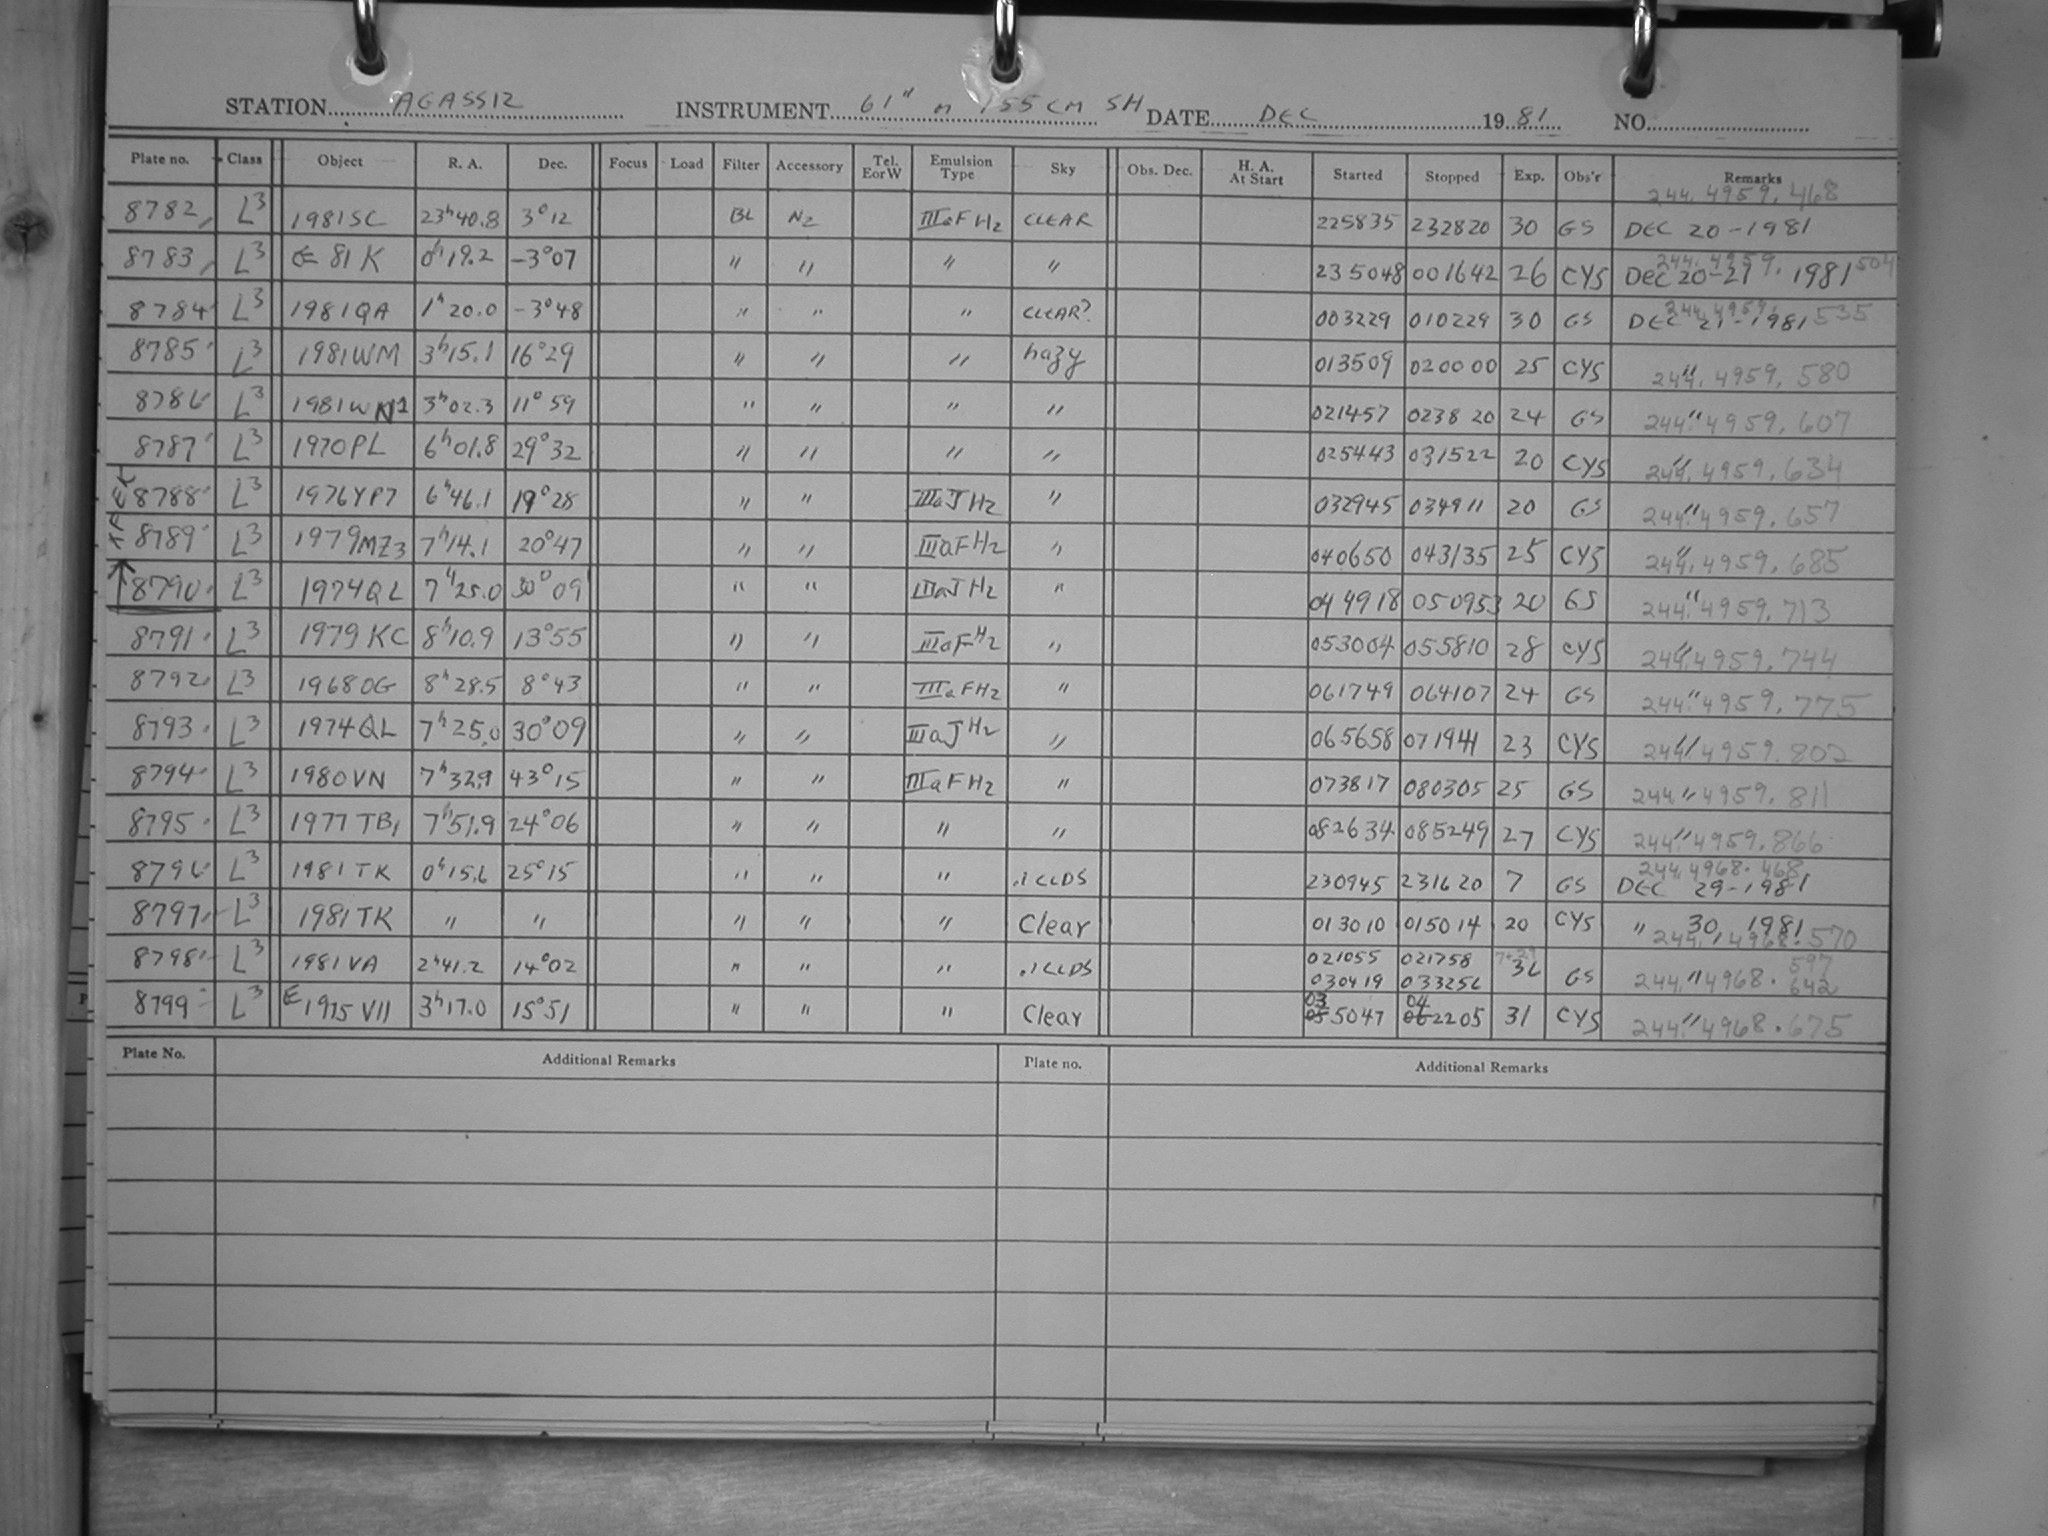 STATION AGASSIZ INSTRUMENT 61" n 155 CM SH DATE DEC 1981 NO.
Plate no. Class Object R. A. Dec. Focus Load Filter Accessory Tel. E or W Emulsion Type Sky Obs. Dec. H. A. At Start Started Stopped Exp. Obs'r Remarks
244.4959.468
8782 L3 1981SC 23h40.8 3°12 BL N2 IIIaFH2 CLEAR 225835 232820 30 GS DEC 20-1981
8783 L3 E 81K 0h19.2 -3°07 " " " " 235048 001642 26 CYS Dec 20-21, 1981 244.4959.504
8784 L3 1981QA 1h20.0 -3°48 " " " CLEAR? 003229 010229 30 GS DEC 21-1981 244.4959.535
8785 L3 1981WM 3h15.1 16°29 " " " hazy 013509 020000 25 CYS " 244.4959.580
8786 L3 1981WN1 3h02.3 11°59 " " " " 021457 023820 24 GS " 244.4959.607
8787 L3 1970PL 6h01.8 29°32 " " " " 025443 031522 20 CYS " 244.4959.634
8788 L3 1976YP7 6h46.1 19°28 " " IIIaJH2 " 032945 034911 20 GS " 244.4959.657
8789 L3 1979MZ3 7h14.1 20°47 " " IIIaFH2 " 040650 043135 25 CYS " 244.4959.685
8790 L3 1974QL 7h25.0 30°09 " " IIIaJH2 " 044918 050953 20 GS " 244.4959.713
8791 L3 1979KC 8h10.9 13°55 " " IIIaFH2 " 053004 055810 28 CYS " 244.4959.744
8792 L3 1968OG 8h28.5 8°43 " " IIIaFH2 " 061749 064107 24 GS " 244.4959.775
8793 L3 1974QL 7h25.0 30°09 " " IIIaJH2 " 065658 071941 23 CYS " 244.4959.802
8794 L3 1980VN 7h32.9 43°15 " " IIIaFH2 " 073817 080305 25 GS " 244.4959.811
8795 L3 1977TB1 7h51.9 24°06 " " " " 082634 085249 27 CYS " 244.4959.866
8796 L3 1981TK 0h15.6 25°15 " " " .1CLDS 230945 231620 7 GS DEC 29-1981 244.4968.468
8797 L3 1981TK " " " " " Clear 013010 015014 20 CYS " 30, 1981 244.4968.570
8798 L3 1981VA 2h41.2 14°02 " " " .1CLDS 021055 021758 7+29 36 GS " 244.4968.597
030419 033256 642
8799 L3 E1975VII 3h17.0 15°51 " " " Clear 035047 042205 31 CYS " 244.4968.675
Plate No. Additional Remarks Plate no. Additional Remarks